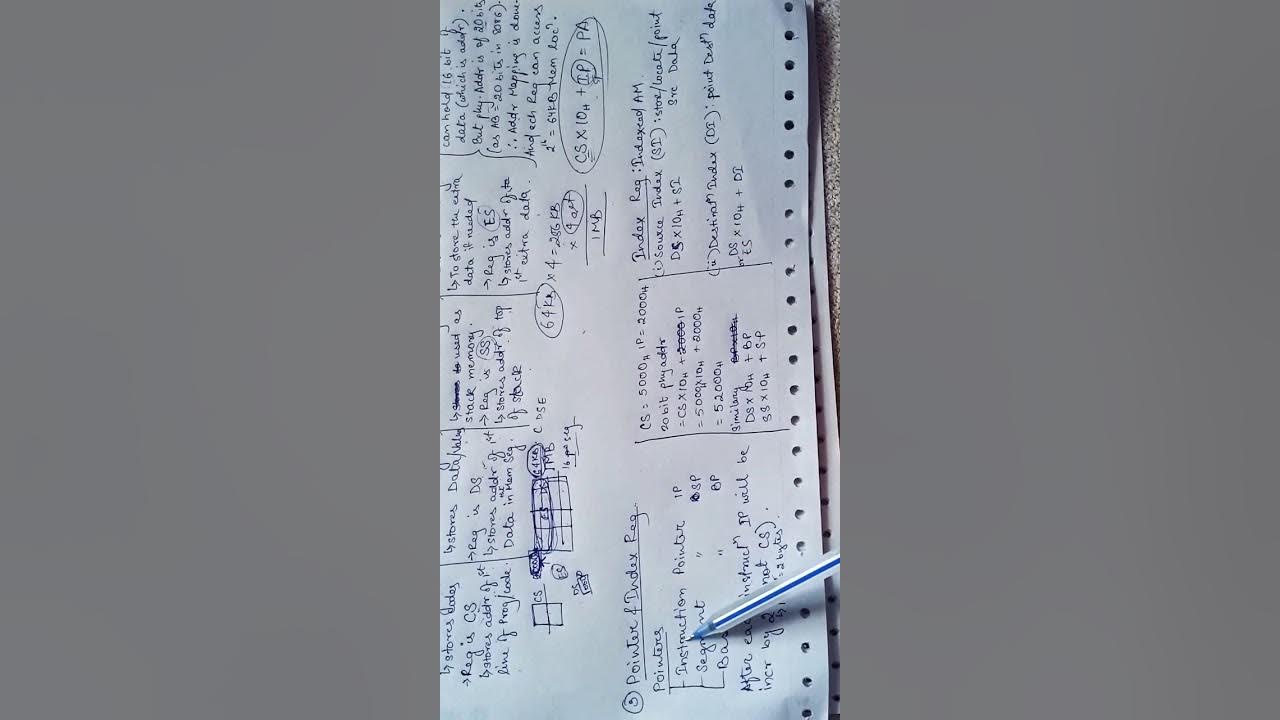 ↳ stores codes
→ Reg is CS
↳ stores addr of 1st
line of Prog/code.
↳ stores Data/Value
→ Reg is DS
↳ stores addr of 1st
Data in Mem Seg.
used as
stack memory.
→ Reg is SS
↳ stores addr of top
of stack
↳ To store the extra
data if needed
→ Reg is ES
↳ stores addr of the
1st extra data.
can hold 16 bit of
data (which is addr).
But phy. Addr is of 20 bits
(as AB = 20 bits in 8086)
∴ Addr Mapping is done
And each Reg can access
2¹⁶ = 64KB Mem locⁿ.
CS
ES
ES
64KB
1MB
C DSE
16 per seg
64KB × 4 = 256KB
1MB
CS × 10H + IP = PA
③ Pointer & Index Reg.
Pointers
Instruction Pointer IP
Segment " SP
Bas " BP
After eac instructⁿ IP will be
incr by 2 not CS).
= 2 bytes
CS = 5000H IP = 2000H
20 bit phy addr
= CS × 10H + IP
= 5000 × 10H + 2000H
= 52000H
Similary
DS × 10H + BP
SS × 10H + SP
Index Reg : Indexed AM
(i) Source Index (SI) : store/locate/point
Src Data
DS × 10H + SI
(ii) Destinatⁿ Index (DI) : point Destⁿ data
DS × 10H + DI
or ES